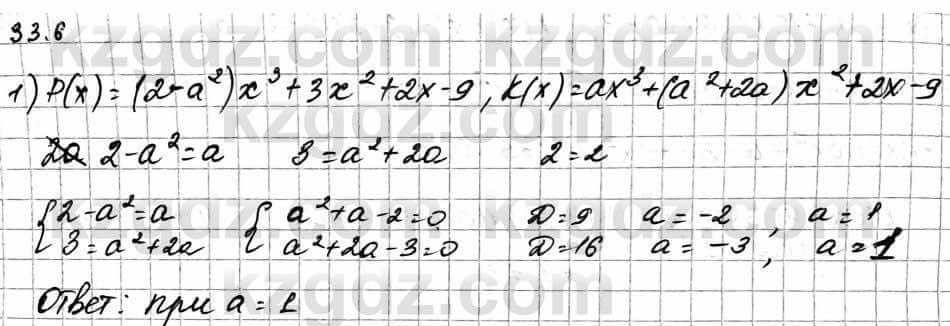 33.6
1) P(x) = (2-a²)x³ + 3x² + 2x - 9; K(x) = ax³ + (a² + 2a)x² + 2x - 9
2-a² = a 3 = a² + 2a 2 = 2
{ 2-a² = a { a² + a - 2 = 0 D = 9 a = -2, a = 1
3 = a² + 2a a² + 2a - 3 = 0 D = 16 a = -3, a = 1
Ответ: при a = 1
kzgdz.com